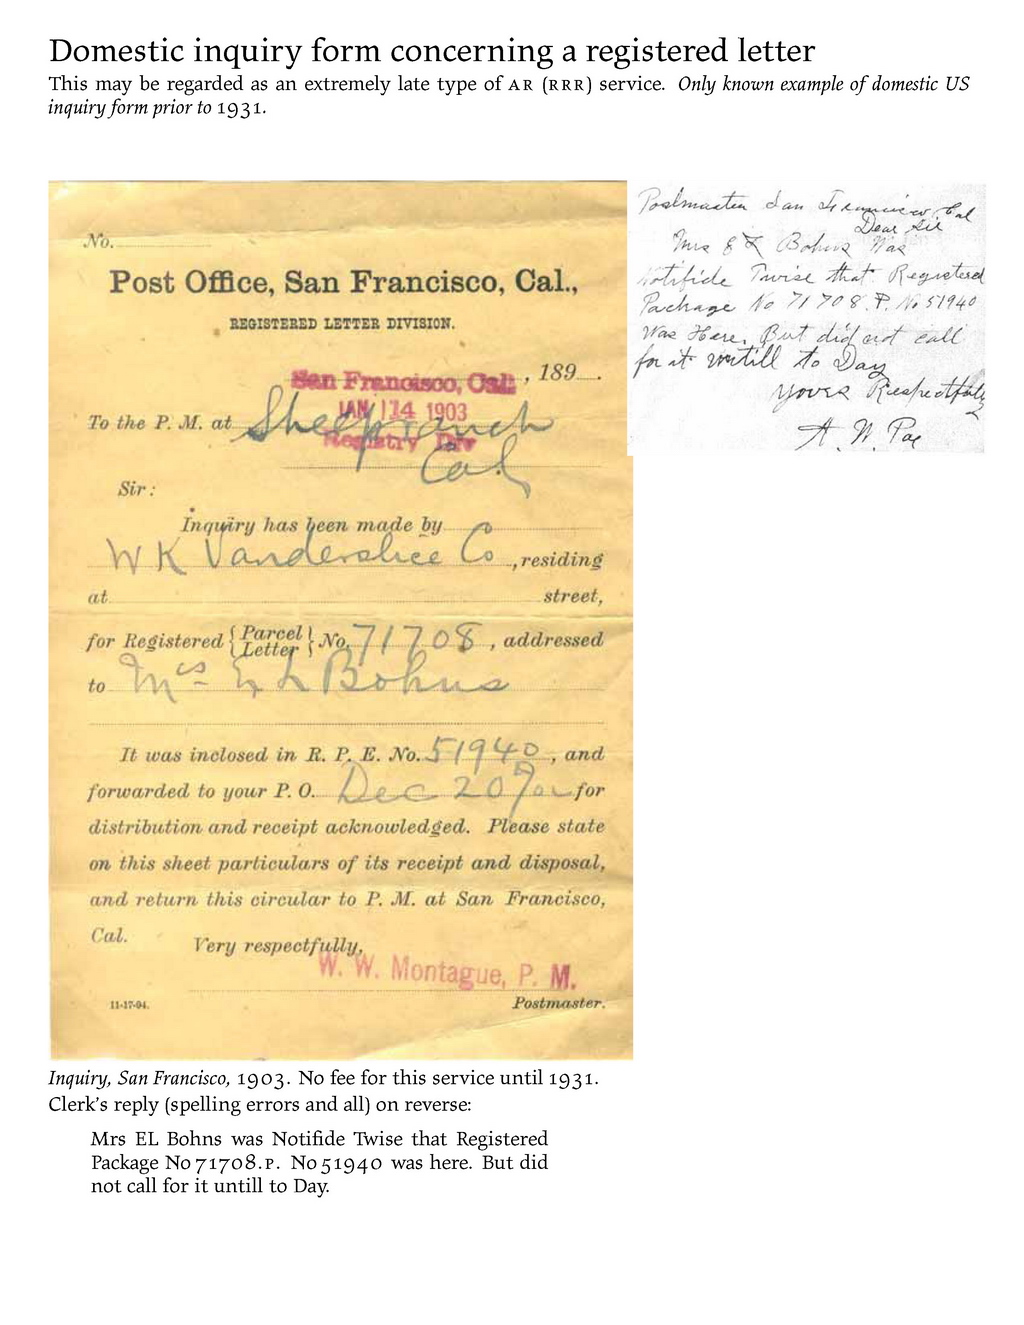 Domestic inquiry form concerning a registered letter
This may be regarded as an extremely late type of AR (RRR) service. Only known example of domestic US
inquiry form prior to 1931.
No.
Post Office, San Francisco, Cal.,
REGISTERED LETTER DIVISION.
San Francisco, Cal. , 189
JAN 14 1903
To the P. M. at Sheepranch
Registry Div
Cal
Sir:
Inquiry has been made by
W K Vanderslice Co , residing
at street,
for Registered { Parcel Letter } No. 71708 , addressed
to Mrs E L Bohns
It was inclosed in R. P. E. No. 51940 , and
forwarded to your P. O. Dec 20 / 02 for
distribution and receipt acknowledged. Please state
on this sheet particulars of its receipt and disposal,
and return this circular to P. M. at San Francisco,
Cal.
Very respectfully,
W. W. Montague, P. M.
11-17-94. Postmaster.
Postmaster San Francisco Cal
Dear Sir
Mrs E L Bohns Was
Notifide Twise that Registered
Package No 71708. P. No 51940
Was Here. But did not call
for it untill to Day
Yours Respectfuly
A. W.
Inquiry, San Francisco, 1903. No fee for this service until 1931.
Clerk's reply (spelling errors and all) on reverse:
Mrs EL Bohns was Notifide Twise that Registered
Package No 71708.P. No 51940 was here. But did
not call for it untill to Day.